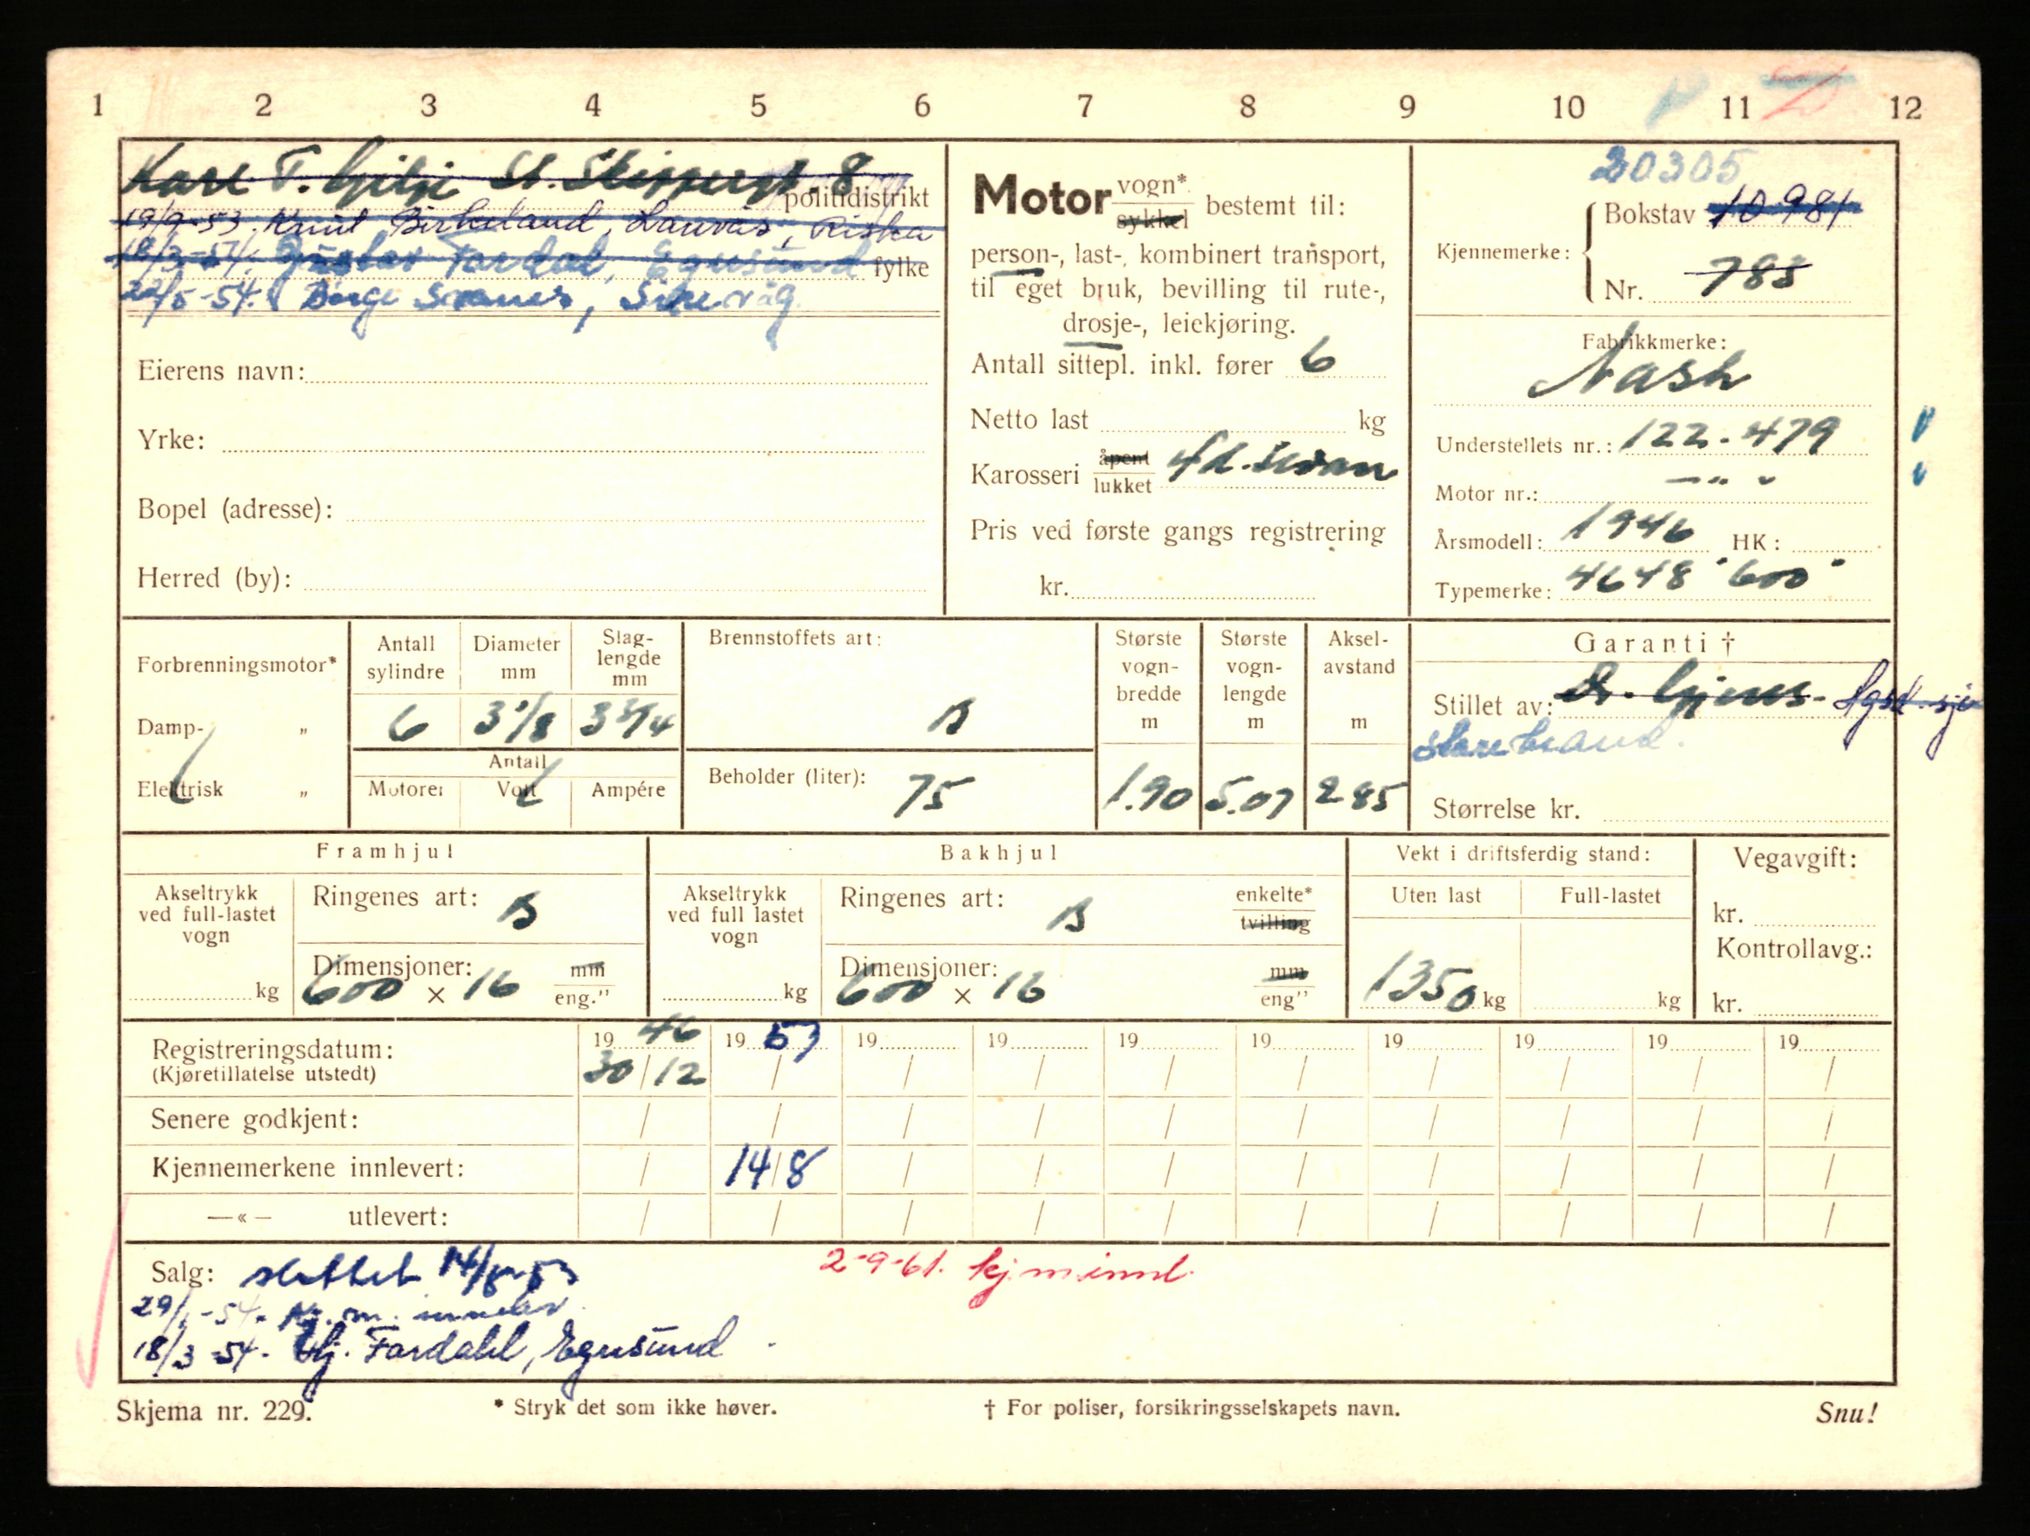 1 2 3 4 5 6 7 8 9 10 11 12
Karl T. Gilje St. Skippergt. 8
politidistrikt
19/9-53. Knut Birkeland, Lauvås, Riska
18/3-54. Gustav Fardal, Egersund
fylke
22/5-54. Børge Svanes, Sirevåg
Eierens navn:
Yrke:
Bopel (adresse):
Herred (by):
Motor vogn* sykkel bestemt til:
person-, last-, kombinert transport,
til eget bruk, bevilling til rute-,
drosje-, leiekjøring.
Antall sittepl. inkl. fører 6
Netto last kg
Karosseri åpent lukket 4d. Sedan
Pris ved første gangs registrering
kr.
20305
Kjennemerke: Bokstav 10981
Nr. 783
Fabrikkmerke:
Nash
Understellets nr.: 122.479
Motor nr.: — " —
Årsmodell: 1946 HK:
Typemerke: 4648 "600"
Forbrenningsmotor*
Damp- „
Elektrisk „
Antall sylindre 6
Diameter mm 3 1/8
Slag-lengde mm 3 3/4
Antall
Motorer Volt Ampére
Brennstoffets art:
B
Beholder (liter): 75
Største vogn-bredde m 1.90
Største vogn-lengde m 5.07
Aksel-avstand m 2.85
Garanti †
Stillet av:
Størrelse kr.
Framhjul
Akseltrykk ved full-lastet vogn
kg
Ringenes art: B
Dimensjoner:
600 × 16 mm eng."
Bakhjul
Akseltrykk ved full lastet vogn
kg
Ringenes art: B enkelte* tvilling
Dimensjoner:
600 × 16 mm eng"
Vekt i driftsferdig stand:
Uten last Full-lastet
1350 kg kg
Vegavgift:
kr.
Kontrollavg.:
kr.
Registreringsdatum: 1946 1953 19 19 19 19 19 19 19 19
(Kjøretillatelse utstedt) 30/12 / / / / / / / / /
Senere godkjent: / / / / / / / / / /
Kjennemerkene innlevert: / 14/8 / / / / / / / /
—«— utlevert: / / / / / / / / / /
Salg: slettet 14/8-53 2-9-61. kj.m.innl.
29/1-54. Kj.m. innlev.
18/3-54. Utlj. Fardahl, Egersund
Skjema nr. 229. * Stryk det som ikke høver. † For poliser, forsikringsselskapets navn. Snu!